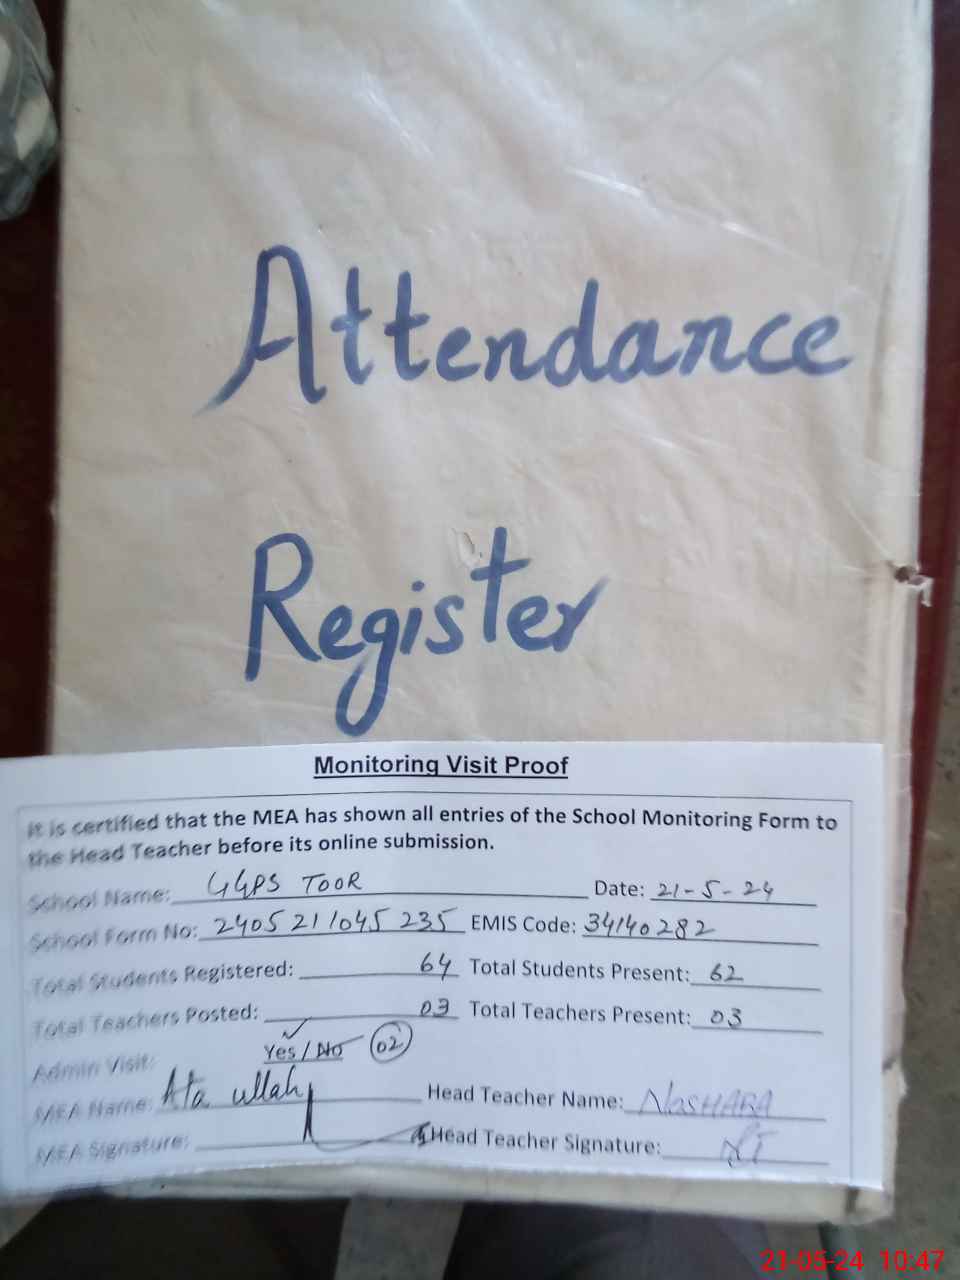 Attendance
Register
Monitoring Visit Proof
It is certified that the MEA has shown all entries of the School Monitoring Form to
the Head Teacher before its online submission.
School Name: GGPS TOOR Date: 21-5-24
School Form No: 2405211045235 EMIS Code: 34140282
Total Students Registered: 64 Total Students Present: 62
Total Teachers Posted: 03 Total Teachers Present: 03
Admin Visit: Yes / No 02
MEA Name: Ata ullah Head Teacher Name: NOSHABA
MEA Signature: Head Teacher Signature:
21-05-24 10:47